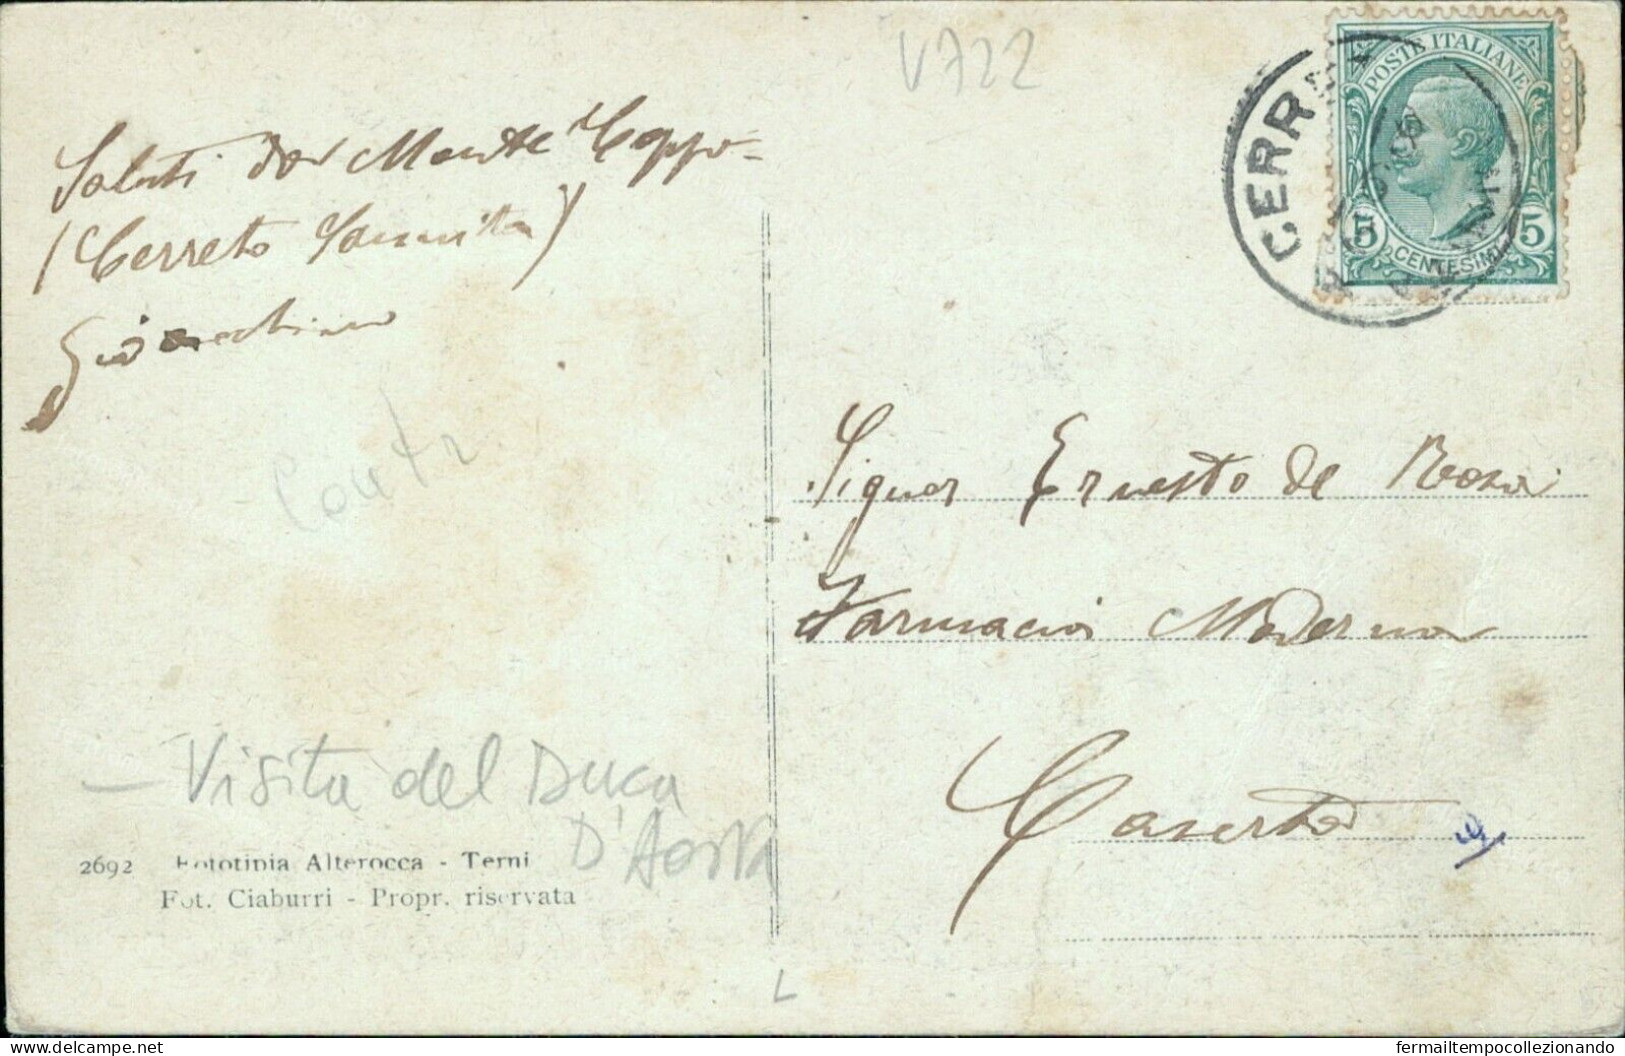 V722
POSTE ITALIANE
5 CENTESIMI 5
CERR
Saluti dal Monte Coppo -
(Cerreto Sannita)
Gioacchino
Signor Ernesto de Rosa
Farmacia Moderna
Caserta
- Visita del Duca
D'Aosta
2692 Fototipia Alterocca - Terni
Fot. Ciaburri - Propr. riservata
L
delcampe.net
fermailtempocollezionando